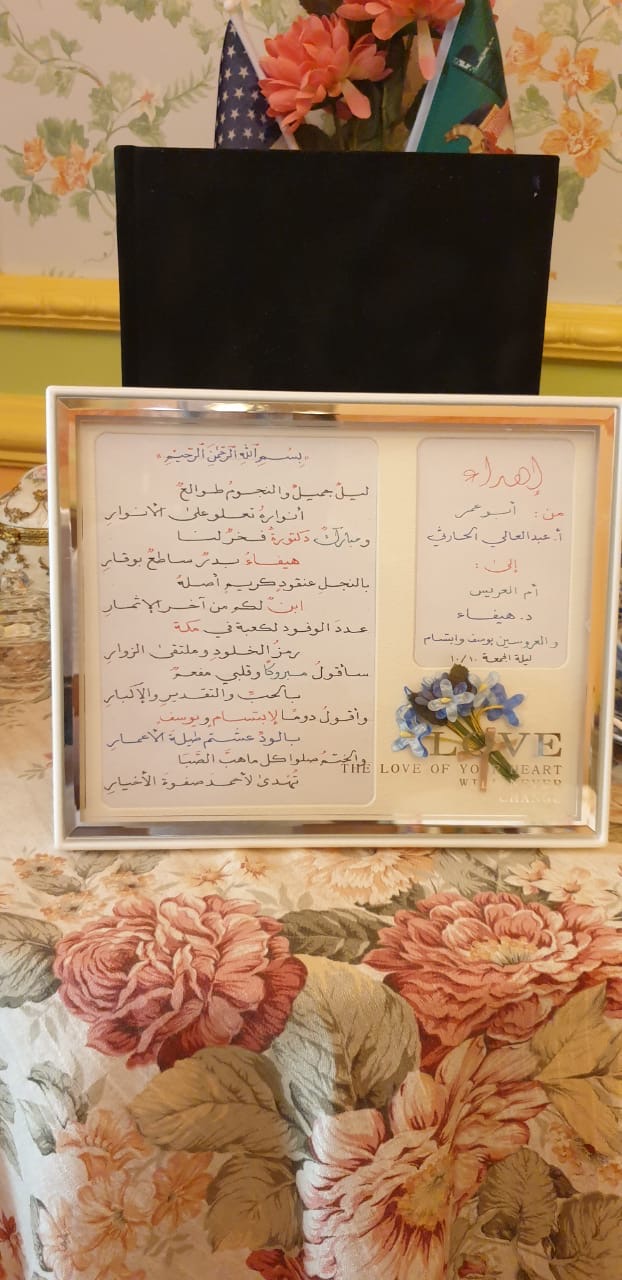 بِسْمِ اللهِ الرَّحْمٰنِ الرَّحِيْمِ
ليلٌ جميلٌ والنجومُ طوالعٌ
أنوارهُ تعلو على الأنوارِ
ومباركٌ دكتورةٌ فخرٌ لنا
هيفاءُ بدرٌ ساطعٌ بوقارِ
بالنجلِ عنقودٍ كريمٍ أصلهُ
ابنٌ لكم من آخر الإثمارِ
عددَ الوفودِ لكعبةٍ في مكة
رمزُ الخلودِ وملتقى الزوارِ
سأقولُ مبروكًا وقلبي مفعمٌ
بالحبِّ والتقديرِ والإكبارِ
وأقولُ دومًا لإبتسام ويوسفٍ
بالودِّ عشتم طيلةَ الأعمارِ
والختمُ صلوا كل ماهبَّ الصَّبَا
تُهدىٰ لأحمدَ صفوةَ الأخيارِ
إهداء
من : أبو عمر
أ. عبدالعالي الحارثي
إلى :
أم العريس
د. هيفاء
والعروسين يوسف وابتسام
ليلة الجمعة ١٠/١٠
LOVE
THE LOVE OF YOUR HEART
WILL NEVER
CHANGE